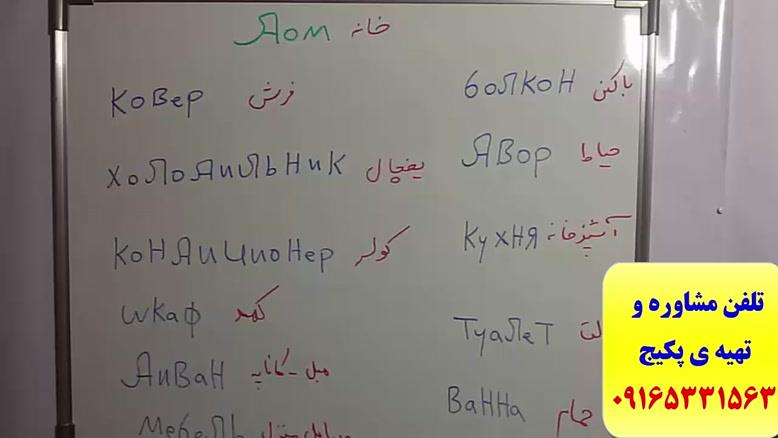 Дом خانه
Ковер فرش
Холодильник یخچال
Кондиционер کولر
шкаф کمد
Диван مبل-کاناپه
Мебель
болкон بالکن
Двор حیاط
Кухня آشپزخانه
Туалет
Ванна حمام
تلفن مشاوره و
تهیه ی پکیج
۰۹۱۶۵۳۳۱۵۶۳